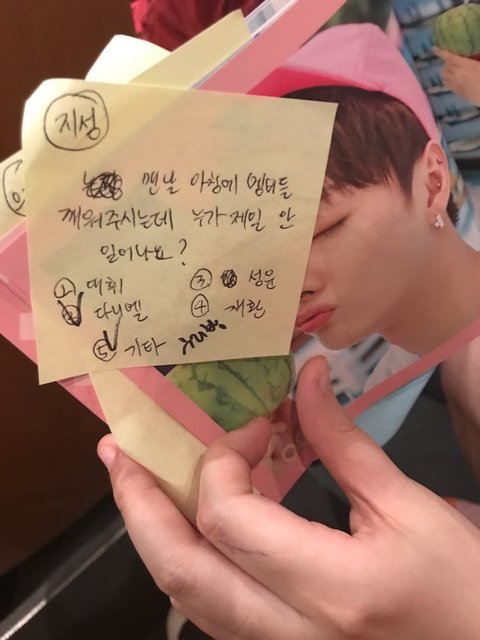 지성
맨날 아침에 멤버들
깨워주시는데 누가 제일 안
일어나요?
① 대휘 ③ 성운
② 다니엘 ④ 재환
⑤ 기타